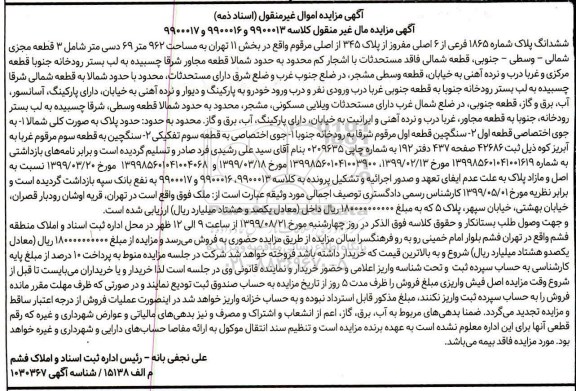 آگهی مزایده اموال غیرمنقول (اسناد ذمه)
آگهی مزایده مال غیر منقول کلاسه ۹۹۰۰۰۱۳ و ۹۹۰۰۰۱۶ و ۹۹۰۰۰۱۷
ششدانگ پلاک شماره ۱۸۶۵ فرعی از ۶ اصلی مفروز از پلاک ۳۴۵ از اصلی مرقوم واقع در بخش ۱۱ تهران به مساحت ۹۶۲ متر ۶۹ دسی متر شامل ۳ قطعه مجزی
شمالی – وسطی – جنوبی، قطعه شمالی فاقد مستحدثات با اشجار کم محدود به حدود شمالا قطعه مجاور شرقا چسبیده به لب بستر رودخانه جنوبا قطعه
مرکزی و غربا درب و نرده آهنی به خیابان، قطعه وسطی مشجر، در ضلع جنوب غرب و ضلع شرق دارای مستحدثات، محدود با حدود شمالا به قطعه شمالی شرقا
چسبیده به لب بستر رودخانه جنوبا به قطعه جنوبی غربا درب ورودی نفر و درب ورود خودرو به پارکینگ و دیوار و نرده آهنی به خیابان، دارای پارکینگ، آسانسور،
آب، برق و گاز، قطعه جنوبی، در ضلع شمال غرب دارای مستحدثات ویلایی مسکونی، مشجر، محدود به حدود شمالا قطعه وسطی، شرقا چسبیده به لب بستر
رودخانه، جنوبا به قطعه مجاور، غربا درب و نرده آهنی و ایرانیت به خیابان، دارای پارکینگ، آب، برق و گاز. محدود به حدود: حدود پلاک به صورت کلی شمالا ۱- به
جوی اختصاصی قطعه اول ۲- سنگچین قطعه اول مرقوم شرقا به رودخانه جنوبا ۱- جوی اختصاصی به قطعه سوم تفکیکی ۲- سنگچین به قطعه سوم مرقوم غربا به
آبریز کوه ذیل ثبت ۴۲۶۸۶ صفحه ۴۳۷ دفتر ۱۹۲ به شماره چاپی ۰۲۰۹۶۳۵ بنام آقای سید علی رشیدی فرد صادر و تسلیم گردیده است و برابر نامه‌های بازداشتی
به شماره ۱۳۹۹۸۵۶۰۱۰۴۱۰۰۱۶۱۹ مورخ ۱۳۹۹/۰۲/۱۳، ۱۳۹۹۸۵۶۰۱۰۴۱۰۰۳۹۰۰ مورخ ۱۳۹۹/۰۳/۱۸ و ۱۳۹۹۸۵۶۰۱۰۴۱۰۰۴۰۶۸ مورخ ۱۳۹۹/۰۳/۲۰ نسبت به
اصل و مازاد پلاک به علت عدم ایفای تعهد و صدور اجرائیه و تشکیل پرونده به کلاسه ۹۹۰۰۰۱۳، ۹۹۰۰۰۱۶ و ۹۹۰۰۰۱۷ به نفع بانک سپه بازداشت گردیده است و
برابر نظریه مورخ ۱۳۹۹/۰۵/۰۱ کارشناس رسمی دادگستری توصیف اجمالی مورد وثیقه عبارت است از: ملک فوق واقع است در تهران، قریه اوشان رودبار قصران،
خیابان بهشتی، خیابان سپهر، پلاک ۵ که به مبلغ ۱۸۰۰۰۰۰۰۰۰۰۰ ریال داخل (معادل یکصد و هشتاد میلیارد ریال) ارزیابی شده است.
و جهت وصول طلب بستانکار و حقوق کلاسه فوق الذکر در روز چهارشنبه مورخ ۱۳۹۹/۰۸/۲۱ از ساعت ۹ الی ۱۲ ظهر در محل اداره ثبت اسناد و املاک منطقه
فشم واقع در تهران فشم بلوار امام خمینی رو به رو فرهنگسرا سالن مزایده از طریق مزایده حضوری به فروش می‌رسد و مزایده از مبلغ ۱۸۰۰۰۰۰۰۰۰۰۰ ریال (معادل
یکصدو هشتاد میلیارد ریال) شروع و به بالاترین قیمت که خریدار داشته باشد فروخته خواهد شد شرکت در جلسه مزایده منوط به پرداخت ۱۰ درصد از مبلغ پایه
کارشناسی به حساب سپرده ثبت و تحت شناسه واریز اعلامی و حضور خریدار و نماینده قانونی وی در جلسه است لذا خریدار و یا خریداران می‌بایست تا قبل از
شروع وقت مزایده اصل فیش واریزی مبلغ فروش را ظرف مدت ۵ روز از تاریخ مزایده به حساب صندوق ثبت تودیع نمایند و در صورتی که ظرف مهلت مقرر مانده
فروش را به حساب سپرده ثبت واریز نکنند، مبلغ مذکور قابل استرداد نبوده و به حساب خزانه واریز خواهد شد در اینصورت عملیات فروش از درجه اعتبار ساقط
و مزایده تجدید می‌گردد. ضمنا بدهی‌های مربوط به آب، برق، گاز، اعم از انشعاب و اشتراک و مصرف و نیز بدهی‌های مالیاتی و عوارض شهرداری و غیره که رقم
قطعی آنها برای این اداره معلوم نشده است به عهده برنده مزایده است و تنظیم سند انتقال موکول به ارائه مفاصا حساب‌های دارایی و شهرداری و غیره خواهد
بود. مورد مزایده فاقد بیمه می‌باشد.
علی نجفی بانه – رئیس اداره ثبت اسناد و املاک فشم
م الف ۱۵۱۳۸ / شناسه آگهی ۱۰۳۰۳۶۷